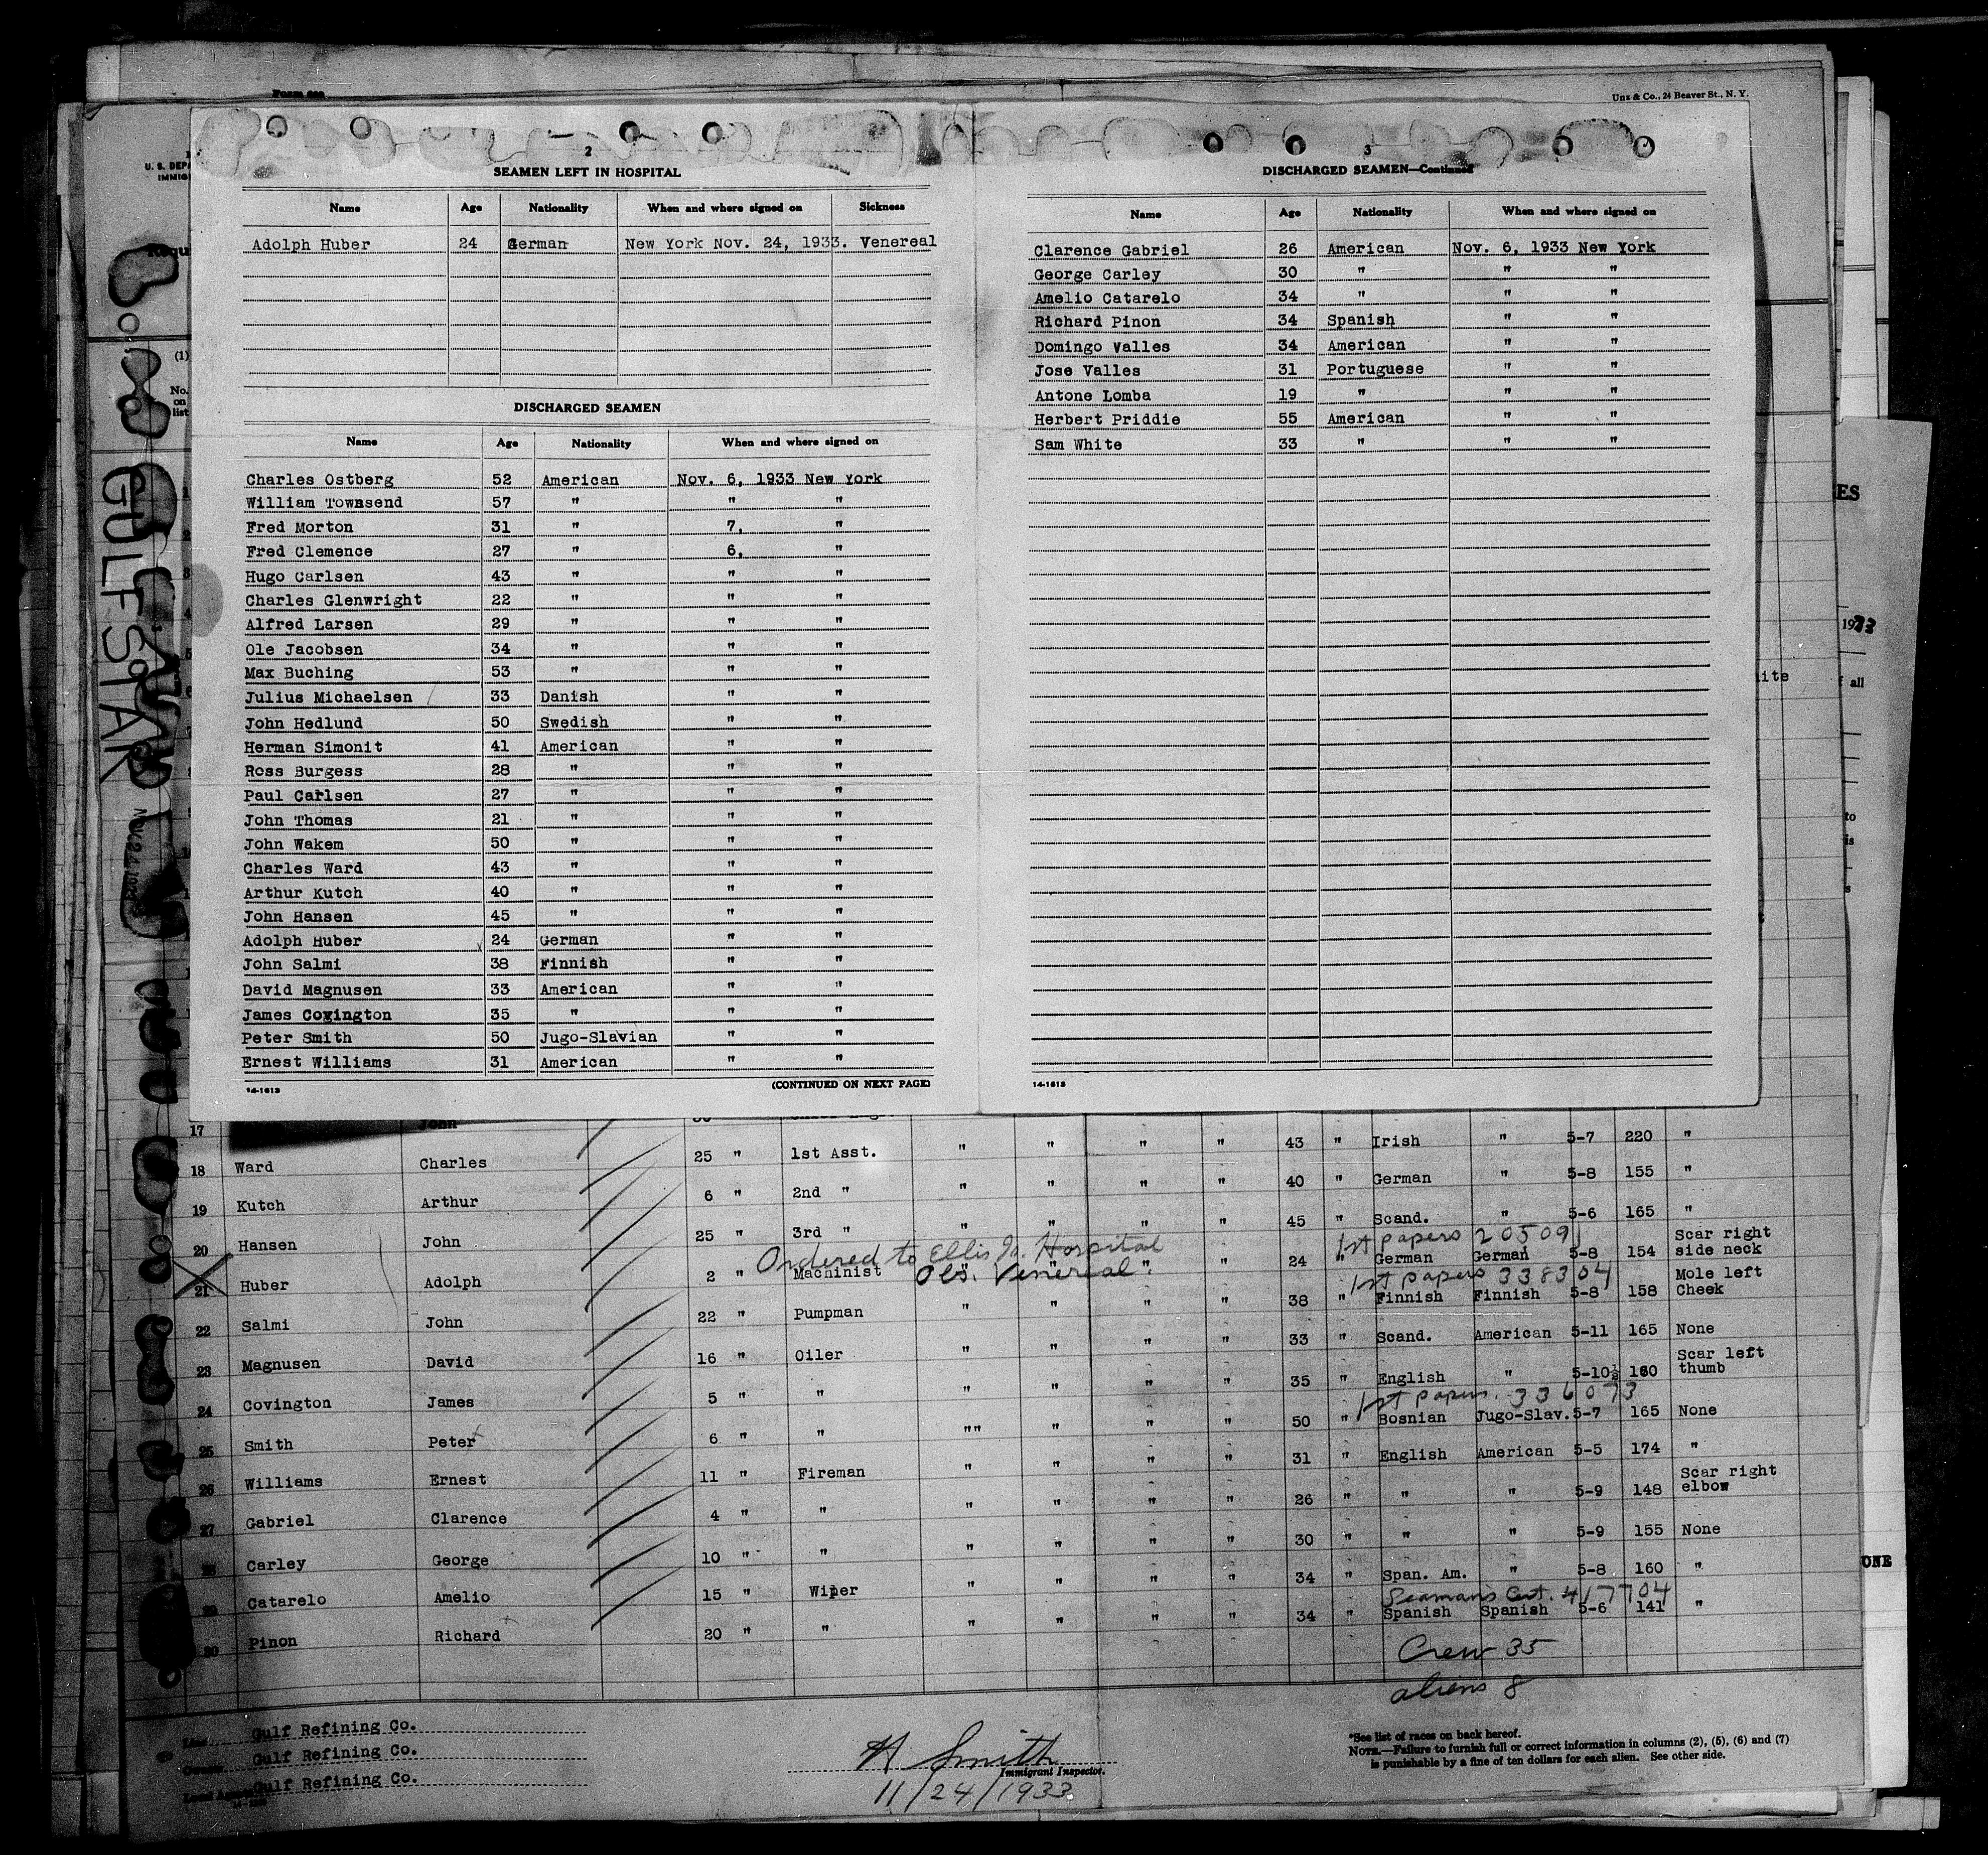 Form 689
Uns & Co., 24 Beaver St., N. Y.
U. S. DEPA
IMMIG
(1)
No. on list
GULFSTAR
NOV 24 1933
2
SEAMEN LEFT IN HOSPITAL
Name Age Nationality When and where signed on Sickness
Adolph Huber 24 German New York Nov. 24, 1933. Venereal
DISCHARGED SEAMEN
Name Age Nationality When and where signed on
Charles Ostberg 52 American Nov. 6, 1933 New York
William Townsend 57 " " "
Fred Morton 31 " 7, "
Fred Clemence 27 " 6, "
Hugo Carlsen 43 " " "
Charles Glenwright 22 " " "
Alfred Larsen 29 " " "
Ole Jacobsen 34 " " "
Max Buching 53 " " "
Julius Michaelsen 33 Danish " "
John Hedlund 50 Swedish " "
Herman Simonit 41 American " "
Ross Burgess 28 " " "
Paul Carlsen 27 " " "
John Thomas 21 " " "
John Wakem 50 " " "
Charles Ward 43 " " "
Arthur Kutch 40 " " "
John Hansen 45 " " "
Adolph Huber 24 German " "
John Salmi 38 Finnish " "
David Magnusen 33 American " "
James Covington 35 " " "
Peter Smith 50 Jugo-Slavian " "
Ernest Williams 31 American " "
14-1613 (CONTINUED ON NEXT PAGE)
3
DISCHARGED SEAMEN—Continued
Name Age Nationality When and where signed on
Clarence Gabriel 26 American Nov. 6, 1933 New York
George Carley 30 " " "
Amelio Catarelo 34 " " "
Richard Pinon 34 Spanish " "
Domingo Valles 34 American " "
Jose Valles 31 Portuguese " "
Antone Lomba 19 " " "
Herbert Priddie 55 American " "
Sam White 33 " " "
14-1613
ES
1933
ite
all
to
is
s
ONE
17 John
18 Ward Charles 25 " 1st Asst. " " " " 43 " Irish " 5-7 220 "
19 Kutch Arthur 6 " 2nd " " " " " 40 " German " 5-8 155 "
20 Hansen John 25 " 3rd " " " " " 45 " Scand. " 5-6 165 "
Ordered to Ellis Is. Hospital
Obs. Venereal.
1st papers 205091
21 Huber Adolph 2 " Machinist " " " " 24 " German German 5-8 154 Scar right side neck
1st papers 338304
22 Salmi John 22 " Pumpman " " " " 38 " Finnish Finnish 5-8 158 Mole left Cheek
23 Magnusen David 16 " Oiler " " " " 33 " Scand. American 5-11 165 None
24 Covington James 5 " " " " " " 35 " English " 5-10½ 160 Scar left thumb
1st papers. 336073
25 Smith Peter 6 " " "" " " " 50 " Bosnian Jugo-Slav. 5-7 165 None
26 Williams Ernest 11 " Fireman " " " " 31 " English American 5-5 174 "
27 Gabriel Clarence 4 " " " " " " 26 " " " 5-9 148 Scar right elbow
28 Carley George 10 " " " " " " 30 " " " 5-9 155 None
29 Catarelo Amelio 15 " Wiper " " " " 34 " Span. Am. " 5-8 160 "
Seamans Cert. 417704
30 Pinon Richard 20 " " " " " " 34 " Spanish Spanish 5-6 141 "
Crew 35
aliens 8
Line Gulf Refining Co.
Owners Gulf Refining Co.
Local Agents Gulf Refining Co.
H Smith
Immigrant Inspector.
11/24/1933
*See list of races on back hereof.
NOTE.—Failure to furnish full or correct information in columns (2), (5), (6) and (7)
is punishable by a fine of ten dollars for each alien. See other side.